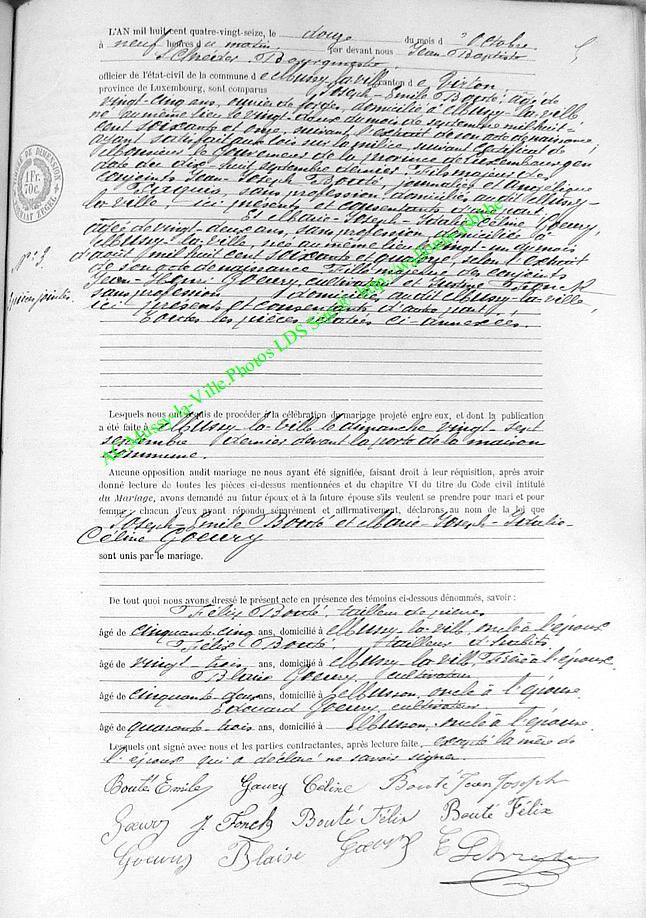 L'AN mil huit cent quatre-vingt-seize, le douze du mois d'Octobre
à neuf heures du matin par devant nous Jean Baptiste
Schneider Bourgmestre
officier de l'état-civil de la commune de Mussy-la-ville canton de Virton
province de Luxembourg, sont comparus Joseph-Emile Bouté, âgé de
vingt-cinq ans, ouvrier de forges, domicilié à Mussy-la-ville
né au même lieu le vingt-deux du mois de septembre mil huit-
cent soixante et onze, suivant l'extrait de son acte de naissance,
ayant satisfait aux lois sur la milice, suivant certificat de
Monsieur le Gouverneur de la province de Luxembourg en
date du dix huit septembre dernier. Fils majeur des
conjoints Jean-Joseph Bouté, journalier et Angélique
sans profession, domiciliés audit Mussy-
la-ville ici présents et consentants d'une part,
Et Marie-Joseph-Idalie-Céline Goeury,
âgée de vingt-deux ans, sans profession domiciliée à
Mussy-la-ville, née au même lieu le vingt-un du mois
d'août mil huit cent soixante et quatorze, selon l'extrait
de son acte de naissance. Fille majeure des conjoints
Jean-Henri Goeury, cultivateur et
sans profession domiciliés audit Mussy-la-ville,
ici présents et consentants d'autre part.
Toutes les pièces relatées ci-annexées.
N° 9
pièces jointes
TIMBRE DE DIMENSION
1 Fr.
70 c.
AC Mussy-la-Ville Photos LDS Source: http://
Lesquels nous ont requis de procéder à la célébration du mariage projeté entre eux, et dont la publication
a été faite à Mussy-la-ville le dimanche vingt-sept
septembre dernier devant la porte de la maison
commune.
Aucune opposition audit mariage ne nous ayant été signifiée, faisant droit à leur réquisition, après avoir
donné lecture de toutes les pièces ci-dessus mentionnées et du chapitre VI du titre du Code civil intitulé
du Mariage, avons demandé au futur époux et à la future épouse s'ils veulent se prendre pour mari et pour
femme; chacun d'eux ayant répondu séparément et affirmativement, déclarons au nom de la loi que
Joseph-Emile Bouté et Marie-Joseph-Idalie-
Céline Goeury
sont unis par le mariage.
De tout quoi nous avons dressé le présent acte en présence des témoins ci-dessous dénommés, savoir :
Félix Bouté, tailleur de pierres
âgé de cinquante-cinq ans, domicilié à Mussy-la-ville, oncle à l'époux
Félix Bouté, tailleur d'habits
âgé de vingt-trois ans, domicilié à Mussy-la-ville, Frère à l'époux.
Blaise Goeury, cultivateur
âgé de cinquante-deux ans, domicilié à Musson, oncle à l'épouse
Edouard Goeury, cultivateur
âgé de quarante-trois ans, domicilié à Musson, oncle à l'épouse.
Lesquels ont signé avec nous et les parties contractantes, après lecture faite, excepté la mère de
l'époux qui a déclaré ne savoir signer.
Bouté Emile Goeury Céline Bouté Jean Joseph
Goeury J. Fonck Bouté Félix Bouté Félix
Goeury Blaise Goeury E